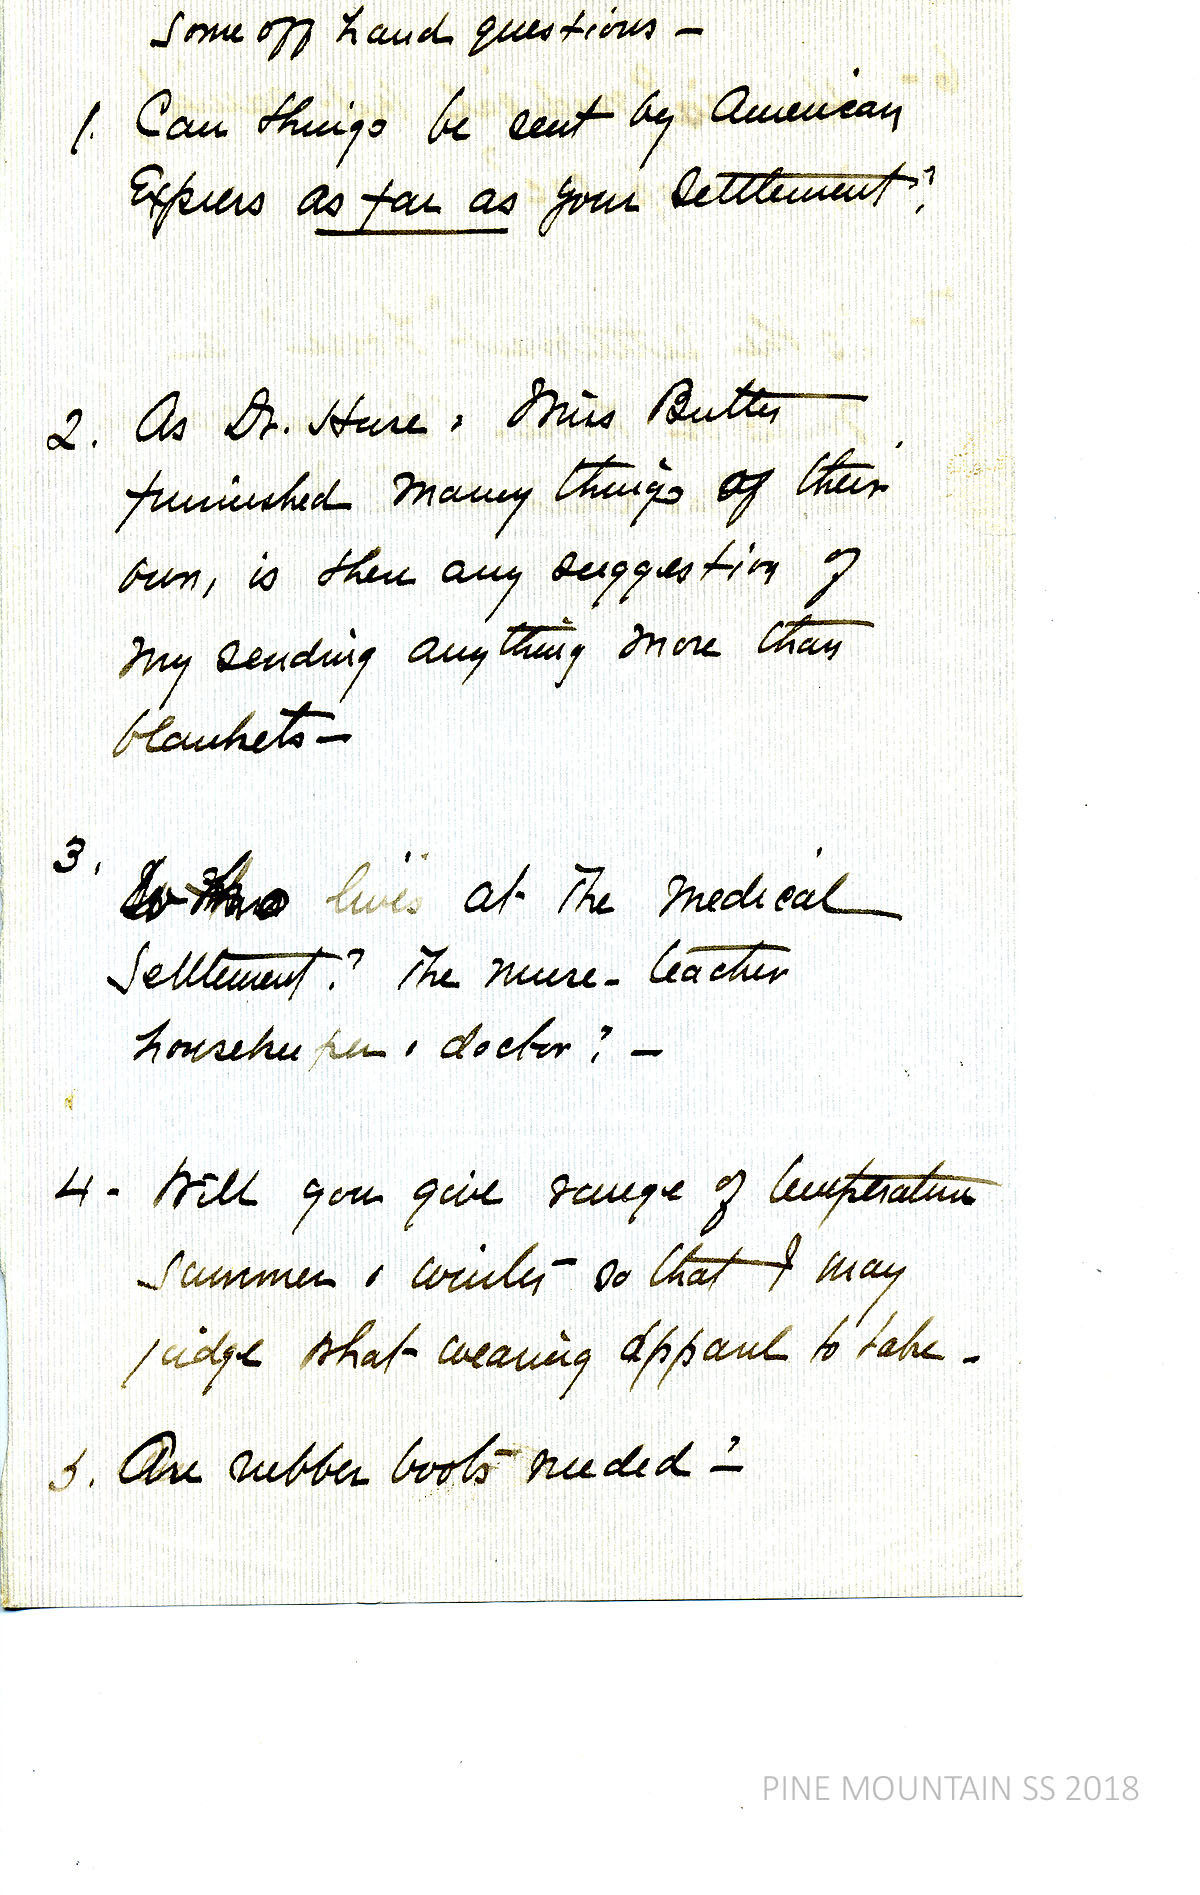 Some off hand questions –
1. Can things be sent by American
Express as far as your settlement?
2. As Dr. Huse & Miss Butler
furnished many things of their
own, is there any suggestion of
my sending anything more than
blankets –
3. Who lives at the medical
Settlement? The nurse – teacher
housekeeper & doctor? –
4 – Will you give range of temperature
summer & winter so that I may
judge what wearing apparel to take –
5. Are rubber boots needed? –
PINE MOUNTAIN SS 2018